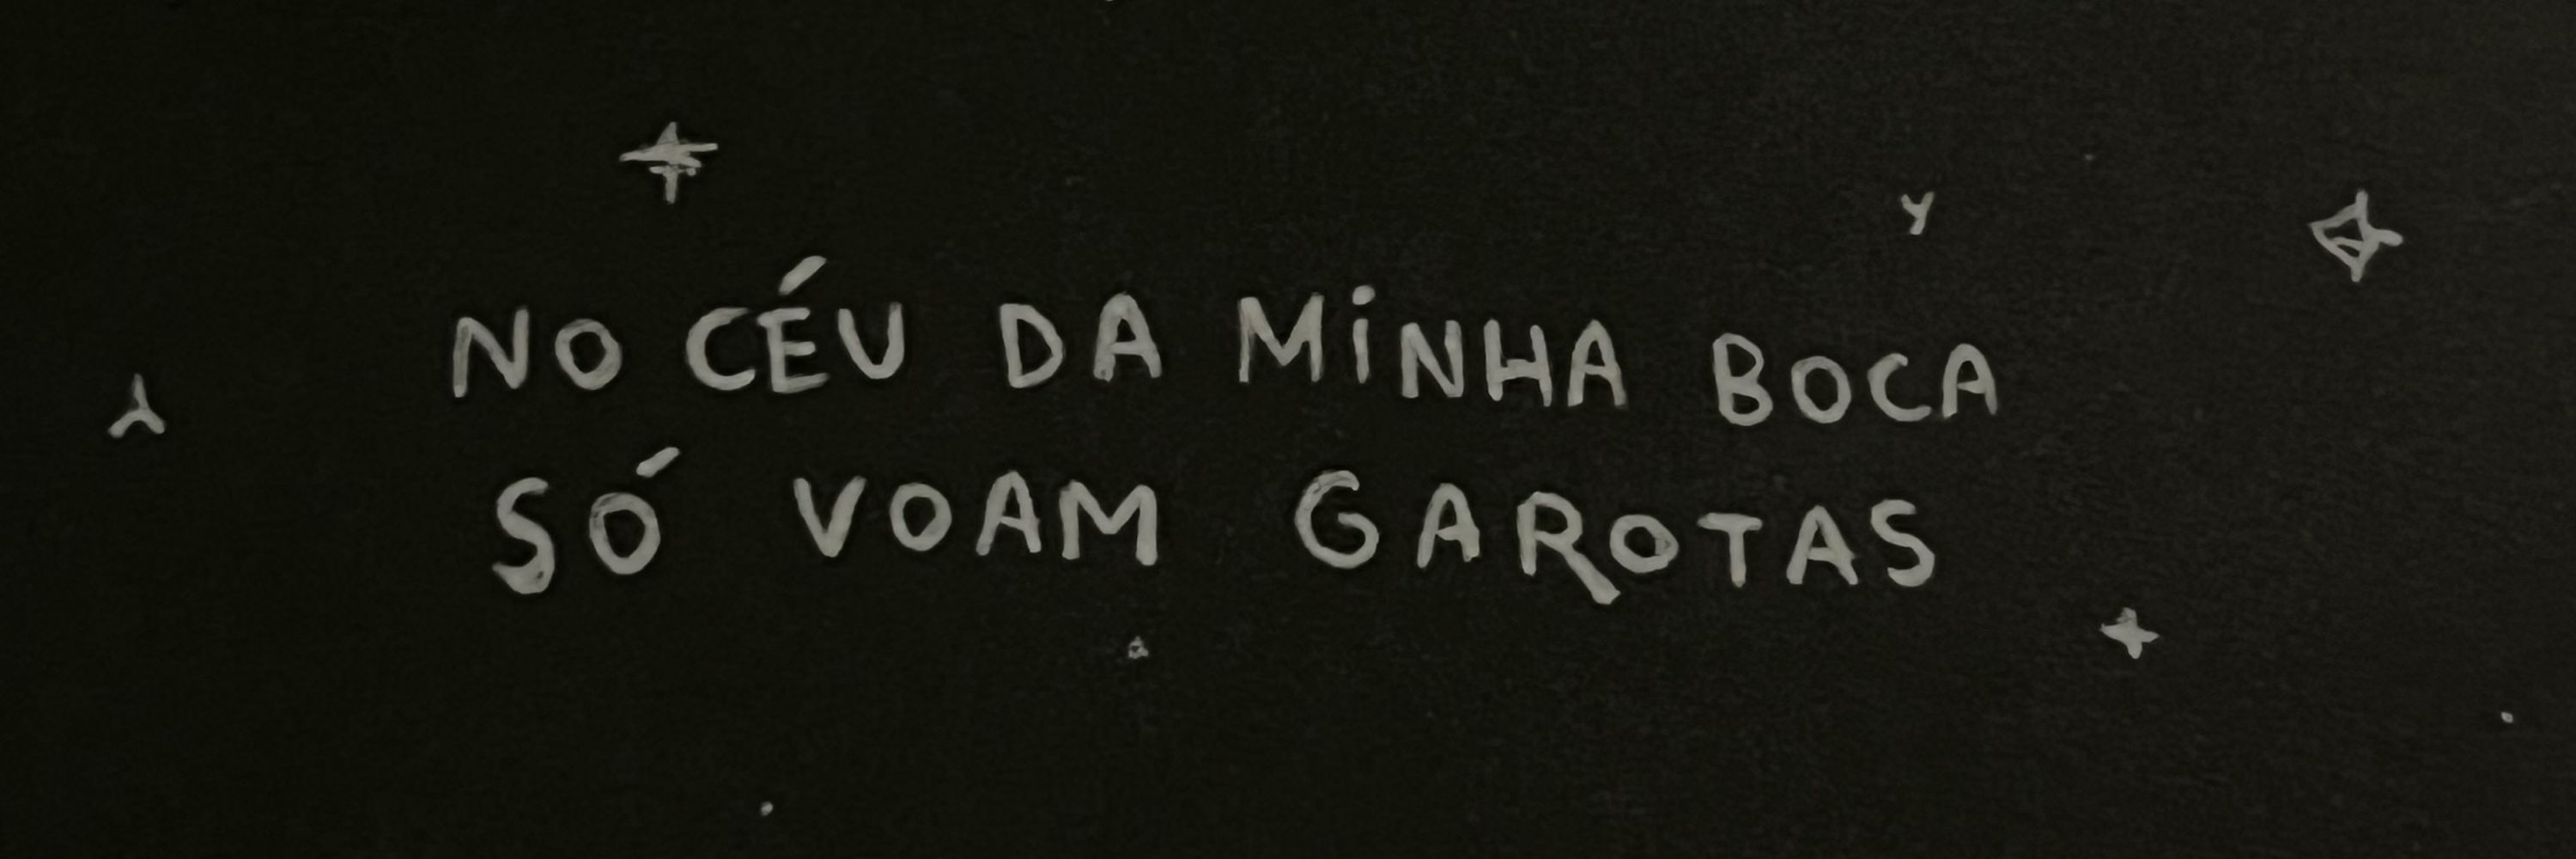 NO CÉU DA MINHA BOCA
SÓ VOAM GAROTAS